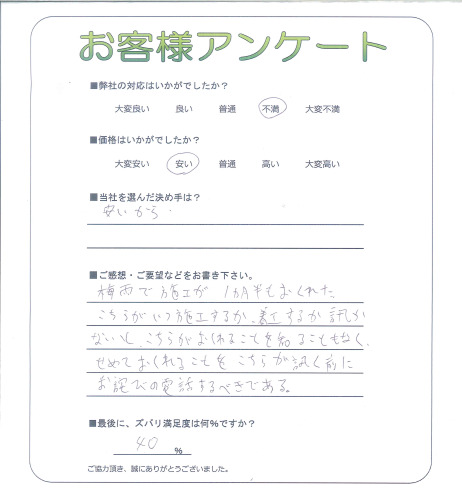 お客様アンケート
■弊社の対応はいかがでしたか？
大変良い　良い　普通　不満　大変不満
■価格はいかがでしたか？
大変安い　安い　普通　高い　大変高い
■当社を選んだ決め手は？
安いから.
■ご感想・ご要望などをお書き下さい。
梅雨で施工が 1ヵ月半もおくれた
こちらがいつ施工するか、着工するか訊か
ないと、こちらがおくれることを知ることもなく、
せめておくれることをこちらが訊く前に
お詫びの電話するべきである。
■最後に、ズバリ満足度は何％ですか？
40 ％
ご協力頂き、誠にありがとうございました。